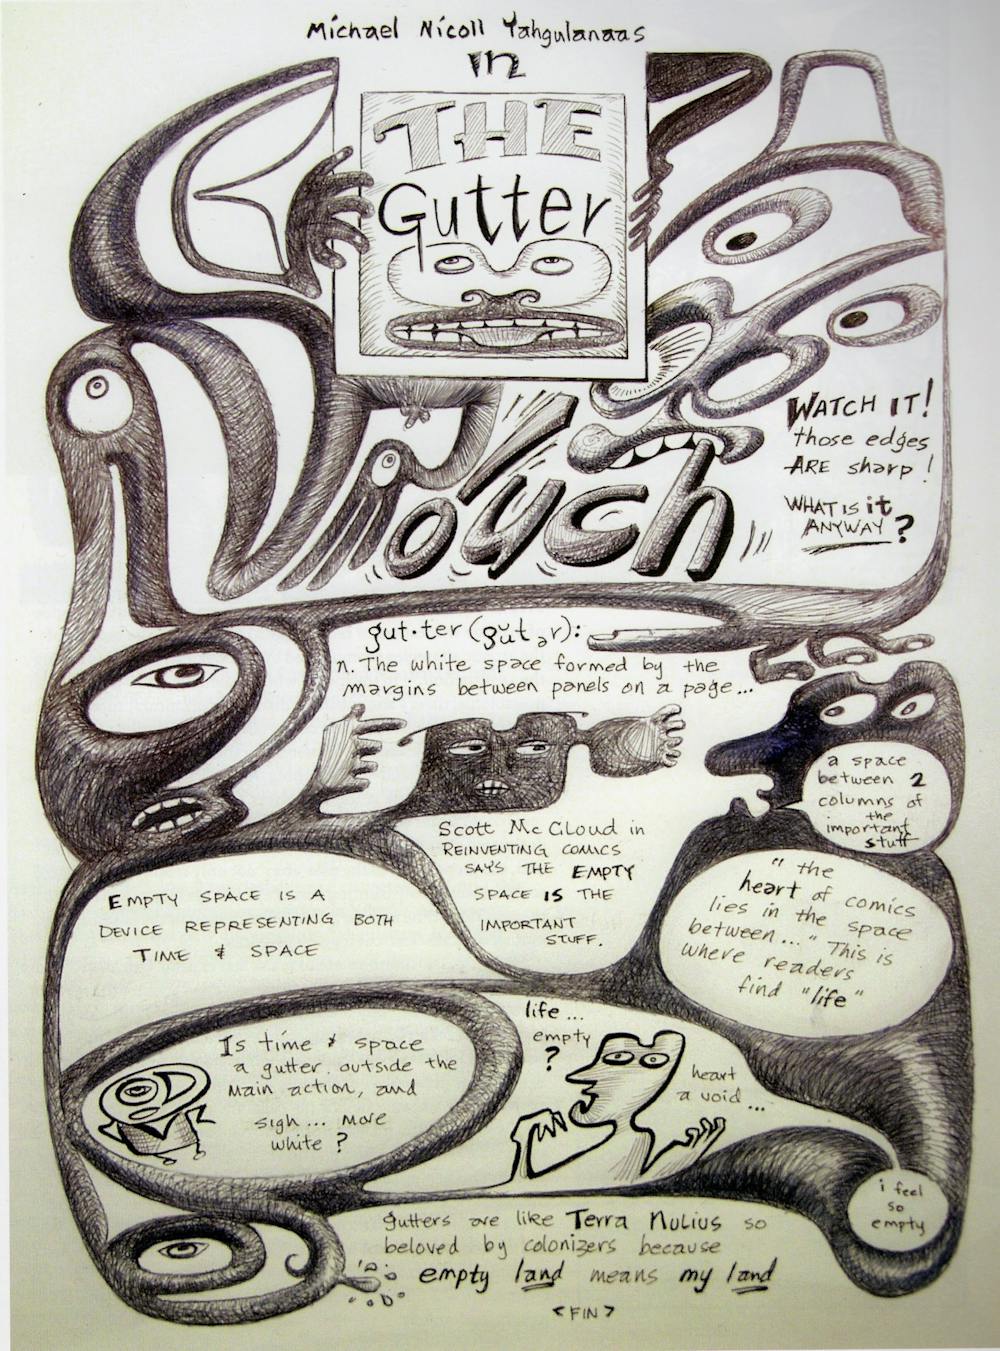 Michael Nicoll Yahgulanaas
in
THE
Gutter
o'uch
WATCH IT!
those edges
ARE sharp!
WHAT IS it
ANYWAY?
gut·ter (gŭt ər):
n. The white space formed by the
margins between panels on a page...
a space
between 2
columns of
the
important
stuff
Scott McCloud in
REINVENTING COMICS
SAYS THE EMPTY
SPACE IS THE
IMPORTANT
STUFF.
EMPTY SPACE IS A
DEVICE REPRESENTING BOTH
TIME & SPACE
"the
heart of comics
lies in the space
between..." This is
where readers
find "life"
Is time & space
a gutter. outside the
main action, and
sigh... more
white?
life...
empty
?
heart
a void...
i feel
so
empty
gutters are like Terra Nulius so
beloved by colonizers because
empty land means my land
<FIN>